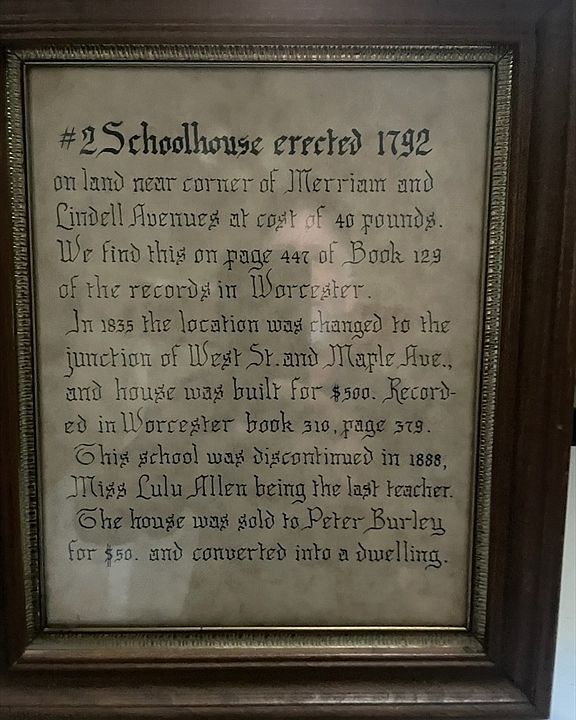 #2 Schoolhouse erected 1792
on land near corner of Merriam and
Lindell Avenues at cost of 40 pounds.
We find this on page 447 of Book 129
of the records in Worcester.
In 1835 the location was changed to the
junction of West St. and Maple Ave.,
and house was built for $500. Record-
ed in Worcester book 310, page 379.
This school was discontinued in 1888,
Miss Lulu Allen being the last teacher.
The house was sold to Peter Burley
for $50. and converted into a dwelling.